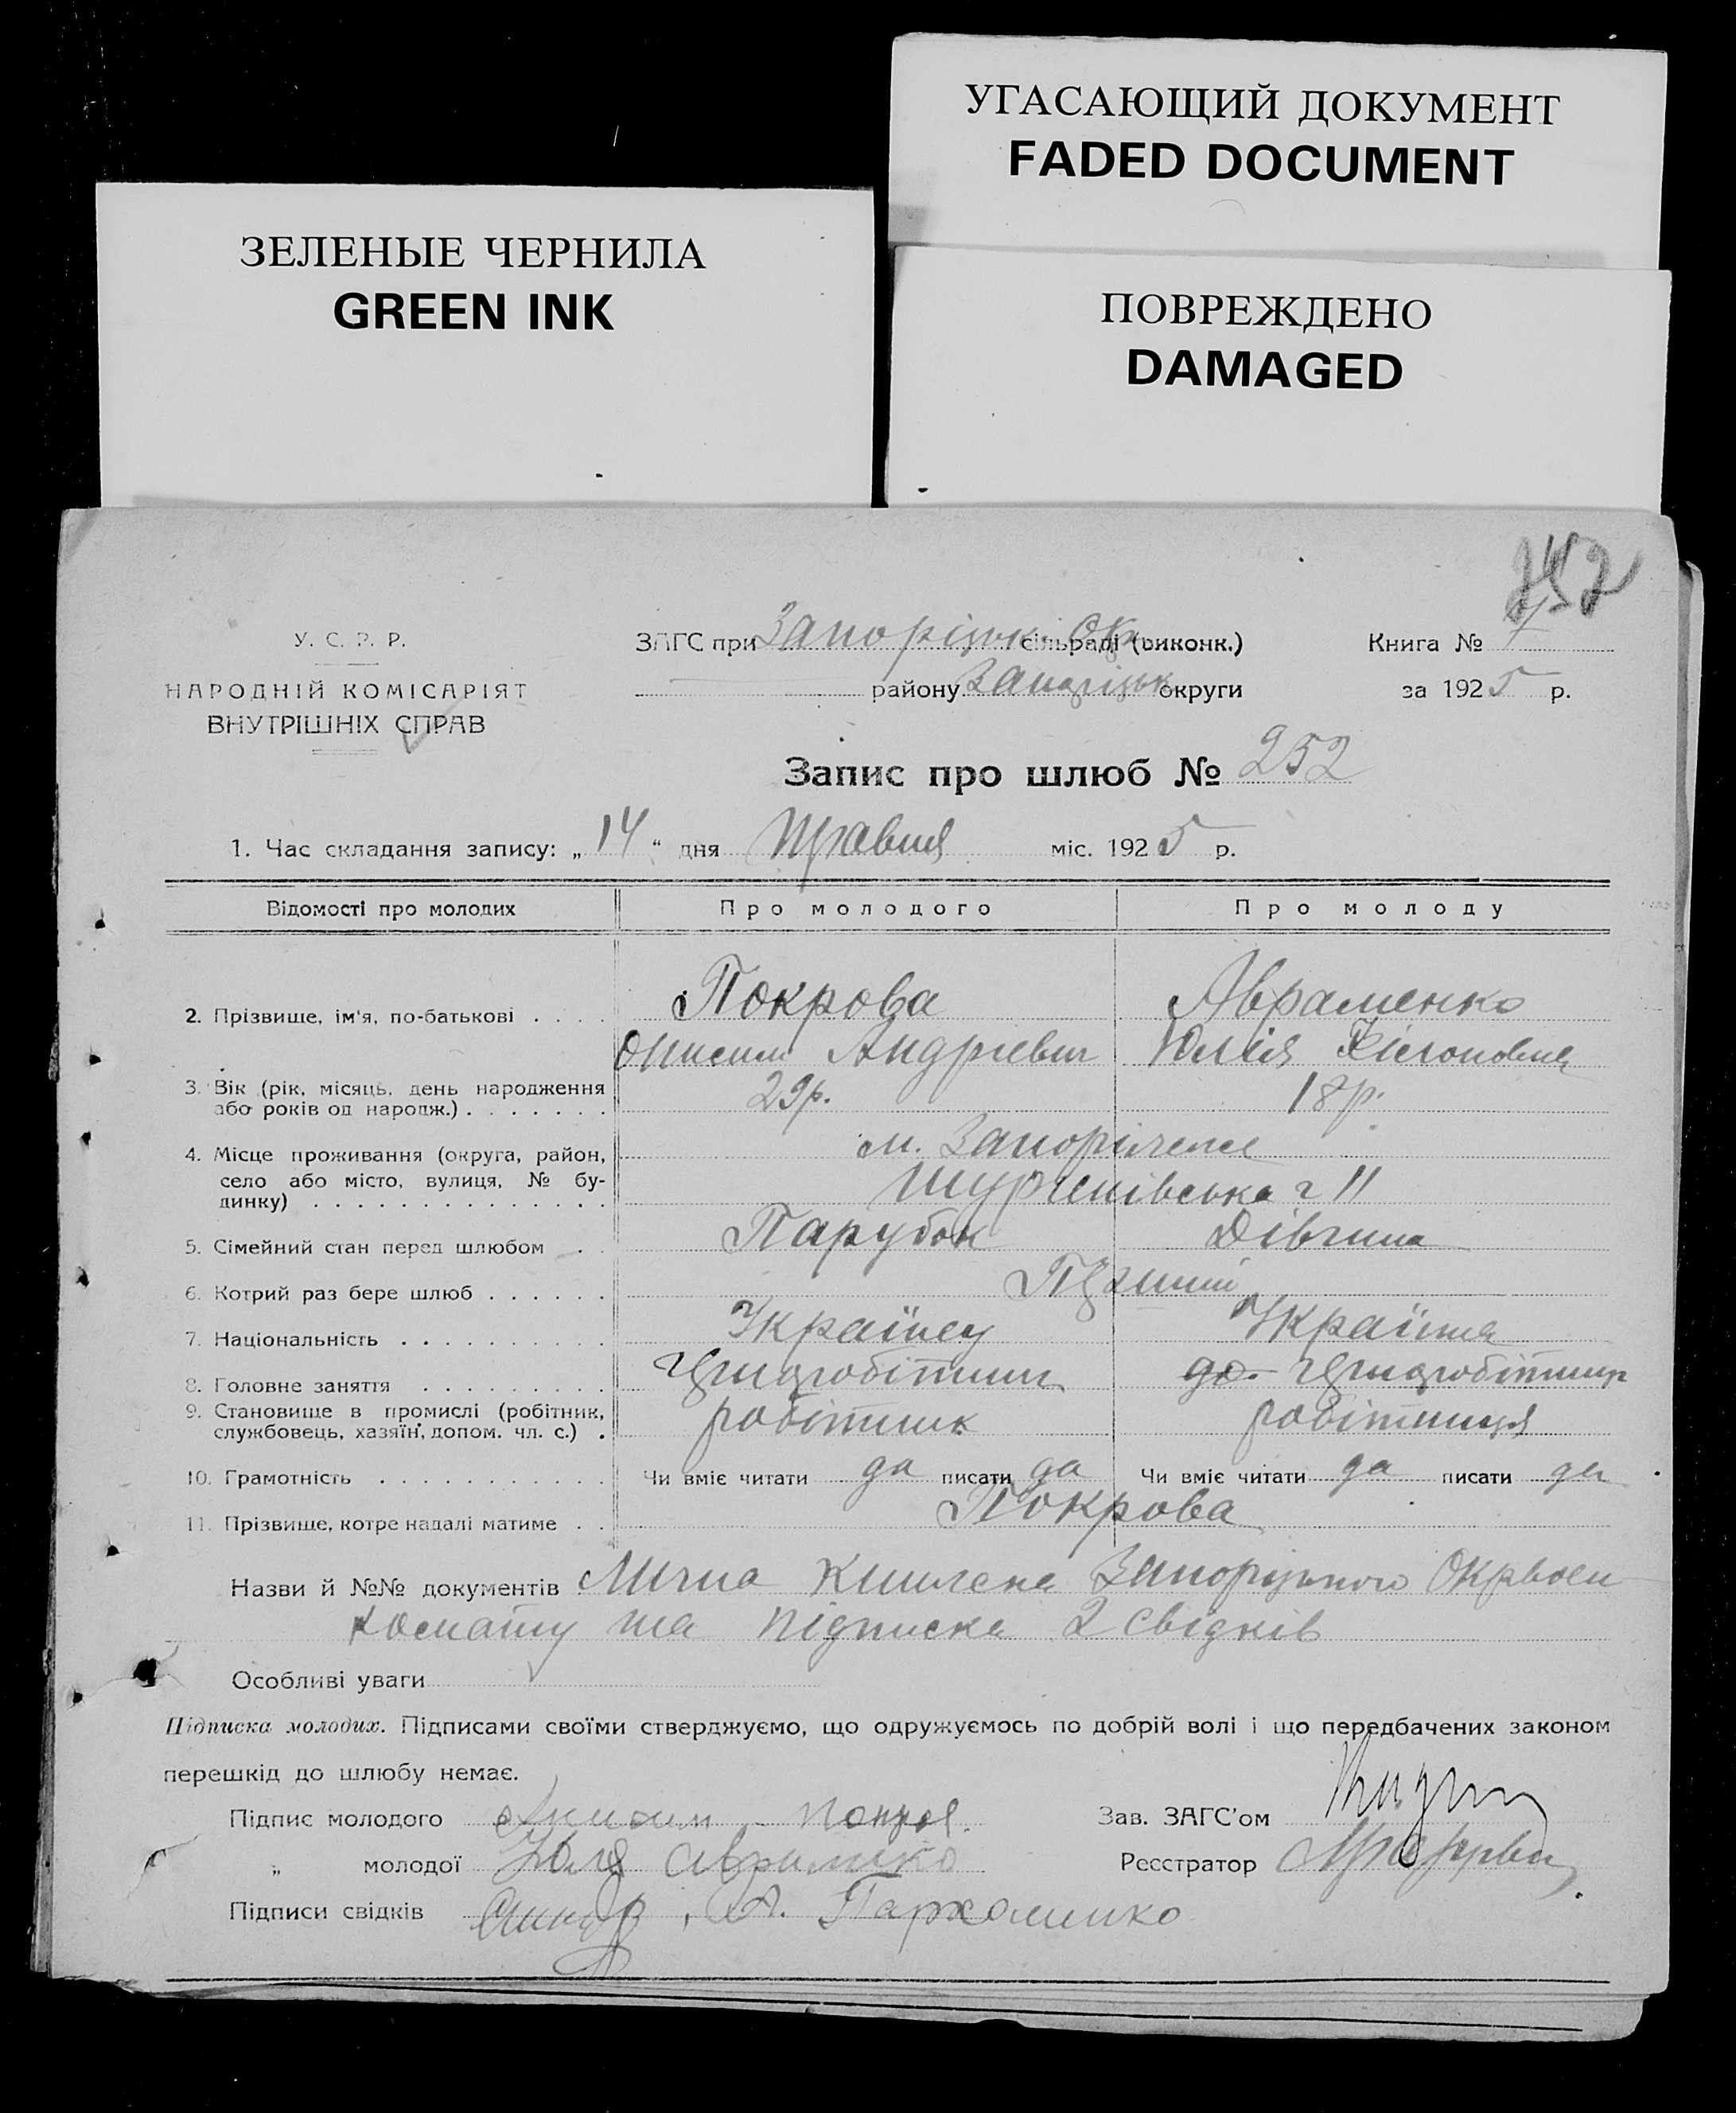 УГАСАЮЩИЙ ДОКУМЕНТ
FADED DOCUMENT
ЗЕЛЕНЫЕ ЧЕРНИЛА
GREEN INK
ПОВРЕЖДЕНО
DAMAGED
252
У. С. Р. Р.
НАРОДНІЙ КОМІСАРІЯТ
ВНУТРІШНІХ СПРАВ
ЗАГС при Запорізьк. Окр. сільраді (виконк.)
району Запорізьк округи
Книга №
за 1925 р.
Запис про шлюб № 252
1. Час складання запису: „14“ дня Травня міс. 1925 р.
Відомості про молодих Про молодого Про молоду
2. Прізвище, ім'я, по-батькові . . . . Покрова Авраменко
Онисим Андрієвич Юлія
3. Вік (рік, місяць, день народження або років од народж.) . . . . . . . 29р. 18р.
4. Місце проживання (округа, район, м. Запоріжже
село або місто, вулиця, № бу-
динку) . . . . . . . . . . . . . . 11
5. Сімейний стан перед шлюбом . . Парубок Дівчина
6. Котрий раз бере шлюб . . . . . . Перший
7. Національність . . . . . . . . . . Українец Українка
8. Головне заняття . . . . . . . . .
9. Становище в промислі (робітник, робітник робітниця
службовець, хазяїн, допом. чл. с.) .
10. Грамотність . . . . . . . . . . . Чи вміє читати да писати да Чи вміє читати да писати да
11. Прізвище, котре надалі матиме . . Покрова
Назви й №№ документів Запорізького Окрвоен
комату та підписка 2 свідків
Особливі уваги
Підписка молодих. Підписами своїми стверджуємо, що одружуємось по добрій волі і що передбачених законом
перешкід до шлюбу немає.
Підпис молодого Зав. ЗАГС'ом
„ молодої Юля Авраменко Реєстратор
Підписи свідків , А. Пархоменко